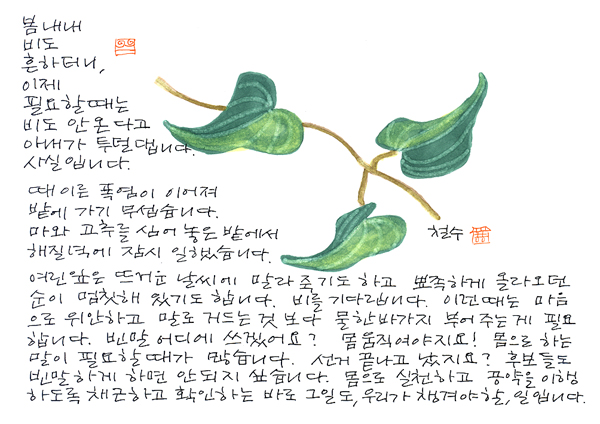 봄내내
비도
흔하더니,
이제
필요할때는
비도 안온다고
아내가 투덜댑니다.
사실입니다.
때이른 폭염이 이어져
밭에 가기 무섭습니다.
마와 고추를 심어 놓은 밭에서
해질녘에 잠시 일했습니다.
철수
여린잎은 뜨거운 날씨에 말라죽기도하고 뾰족하게 올라오던
순이 멈칫해 있기도합니다. 비를기다립니다. 이런때는 마음
으로 위안하고 말로거드는것 보다 물한바가지 부어주는게 필요
합니다. 빈말어디에 쓰겠어요? 몸움직여야지요! 몸으로하는
말이 필요할때가 많습니다. 선거 끝나고 났지요? 후보들도
빈말하게 하면 안되지 싶습니다. 몸으로 실천하고 공약을이행
하도록채근하고 확인하는 바로 그일도, 우리가 챙겨야할, 일입니다.